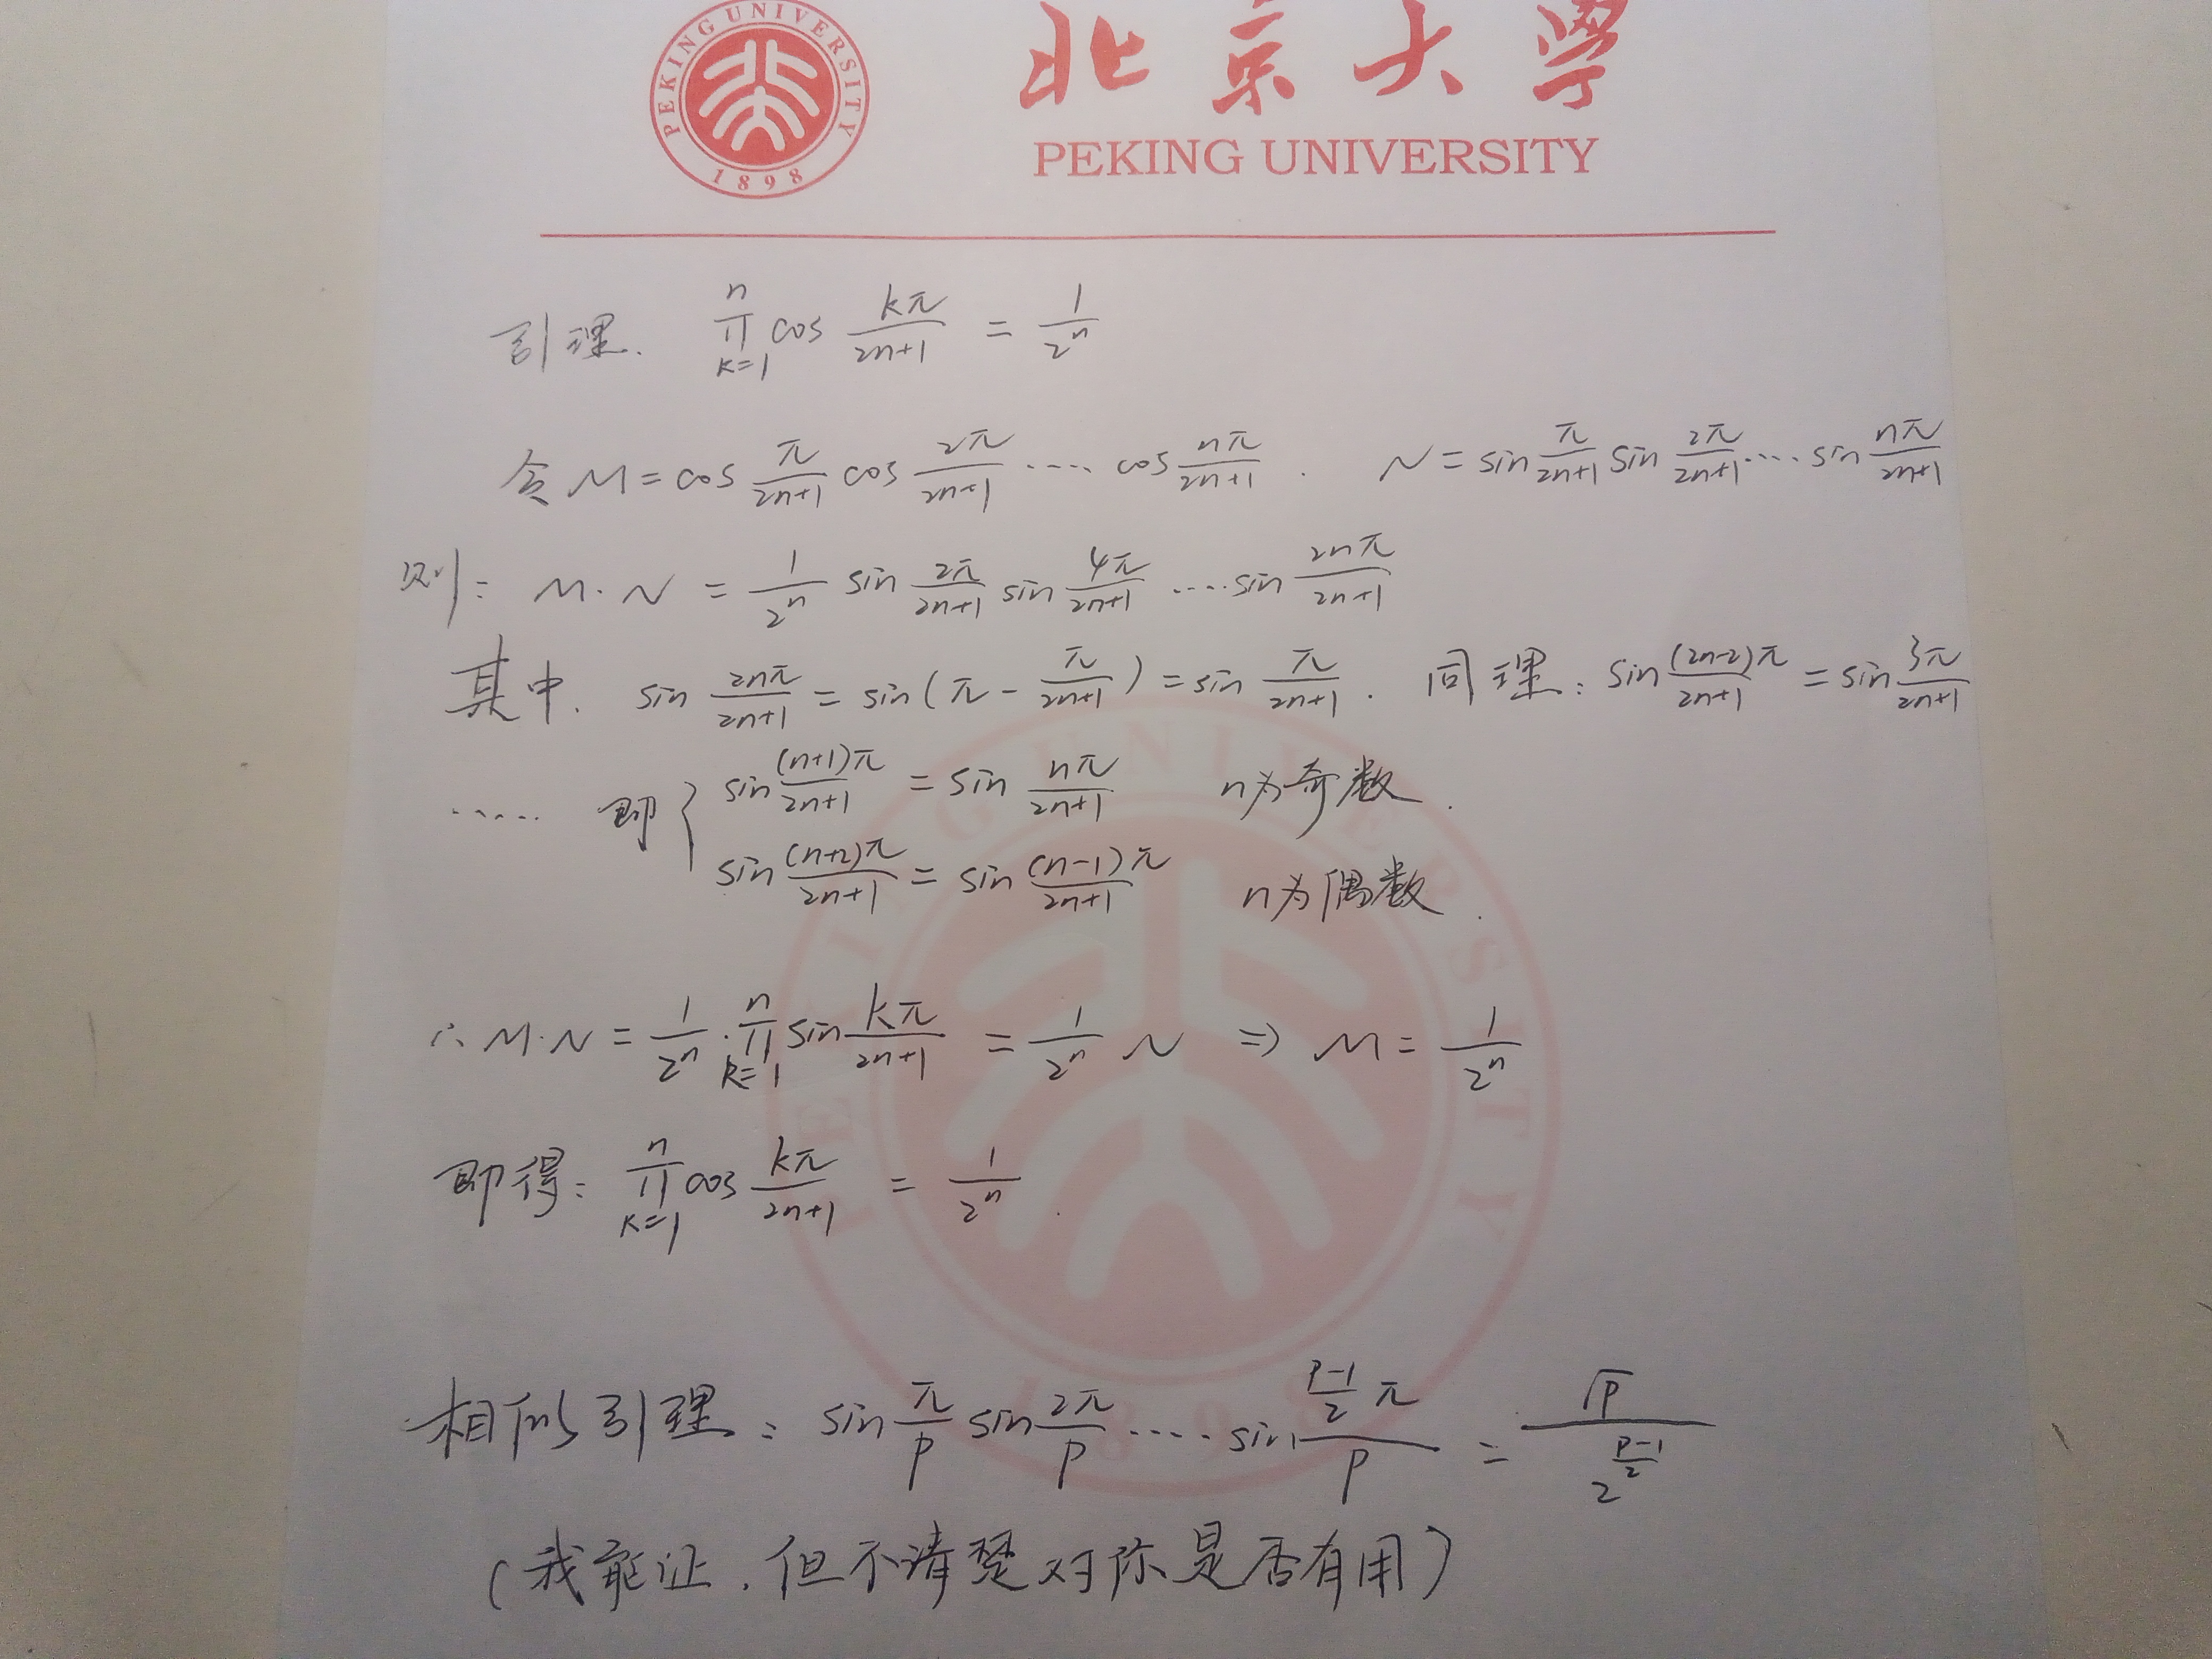 PEKING UNIVERSITY
1898
北京大學
PEKING UNIVERSITY
引理. ∏_{k=1}^{n} cos kπ/(2n+1) = 1/2^n
令 M = cos π/(2n+1) cos 2π/(2n+1) ···· cos nπ/(2n+1) . N = sin π/(2n+1) sin 2π/(2n+1) ···· sin nπ/(2n+1)
则: M·N = 1/2^n sin 2π/(2n+1) sin 4π/(2n+1) ····sin 2nπ/(2n+1)
其中. sin 2nπ/(2n+1) = sin(π - π/(2n+1)) = sin π/(2n+1) . 同理: sin (2n-2)π/(2n+1) = sin 3π/(2n+1)
····· 即 { sin (n+1)π/(2n+1) = sin nπ/(2n+1) n为奇数.
sin (n+2)π/(2n+1) = sin (n-1)π/(2n+1) n为偶数.
∴ M·N = 1/2^n · ∏_{k=1}^{n} sin kπ/(2n+1) = 1/2^n N ⇒ M = 1/2^n
即得: ∏_{k=1}^{n} cos kπ/(2n+1) = 1/2^n .
相似引理: sin π/p sin 2π/p ···· sin ((p-1)/2 π)/p = √p/2^{(p-1)/2}
(我能证.但不清楚对你是否有用)
PEKING UNIVERSITY
1898